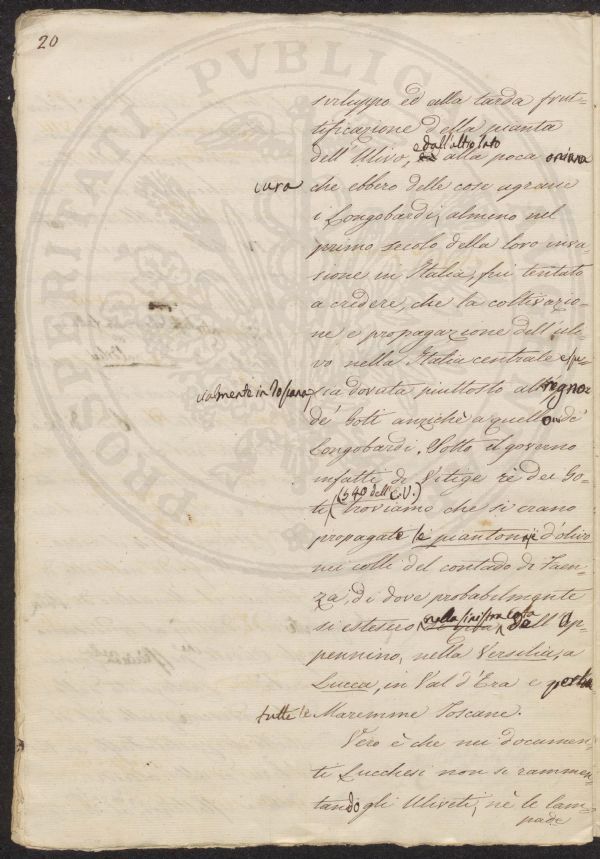 20
sviluppo ed alla tarda frut-
tificazione della pianta
dell'Ulivo, e dall'altro lato alla poca
cura che ebbero delle cose agrarie
i Longobardi, almeno nel
primo secolo della loro inva
sione in Italia, fui tentato
a credere, che la coltivazio-
ne e propagazione dell'uli-
vo nella Italia centrale e spe-
cialmente in Toscana, sia dovuta piuttosto al regno
de' Goti anzichè a quello de'
Longobardi. Sotto il governo
infatti di Vitige rè dei Go-
ti (540 dell'E.V.) troviamo che si erano
propagate le piantoni d'olivo
nei colli del contado di Faen-
za, di dove probabilmente
si estesero nella sinistra costa dell'Ap-
pennino, nella Versilia, a
Lucca, in Val d'Era e per
tutte le Maremme Toscane.
Vero è che nei documen-
ti Lucchesi non si rammen-
tando gli Uliveti, nè le lam-
pade
PROSPERITATI PVBLICAE